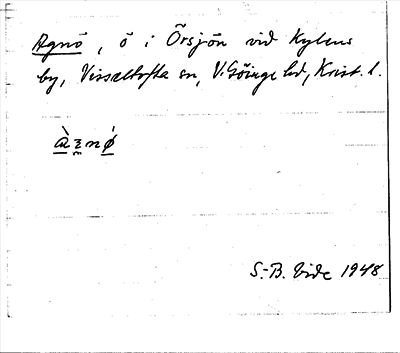 Agnö, ö i Örsjön vid Kylens
by, Visseltofta sn, V. Göinge hd, Krist. l.
S.-B. Vide 1948